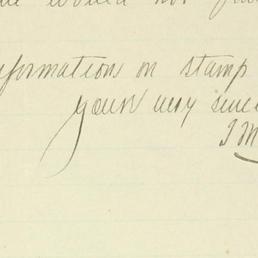 would not
formation on stamp
yours very since
I M